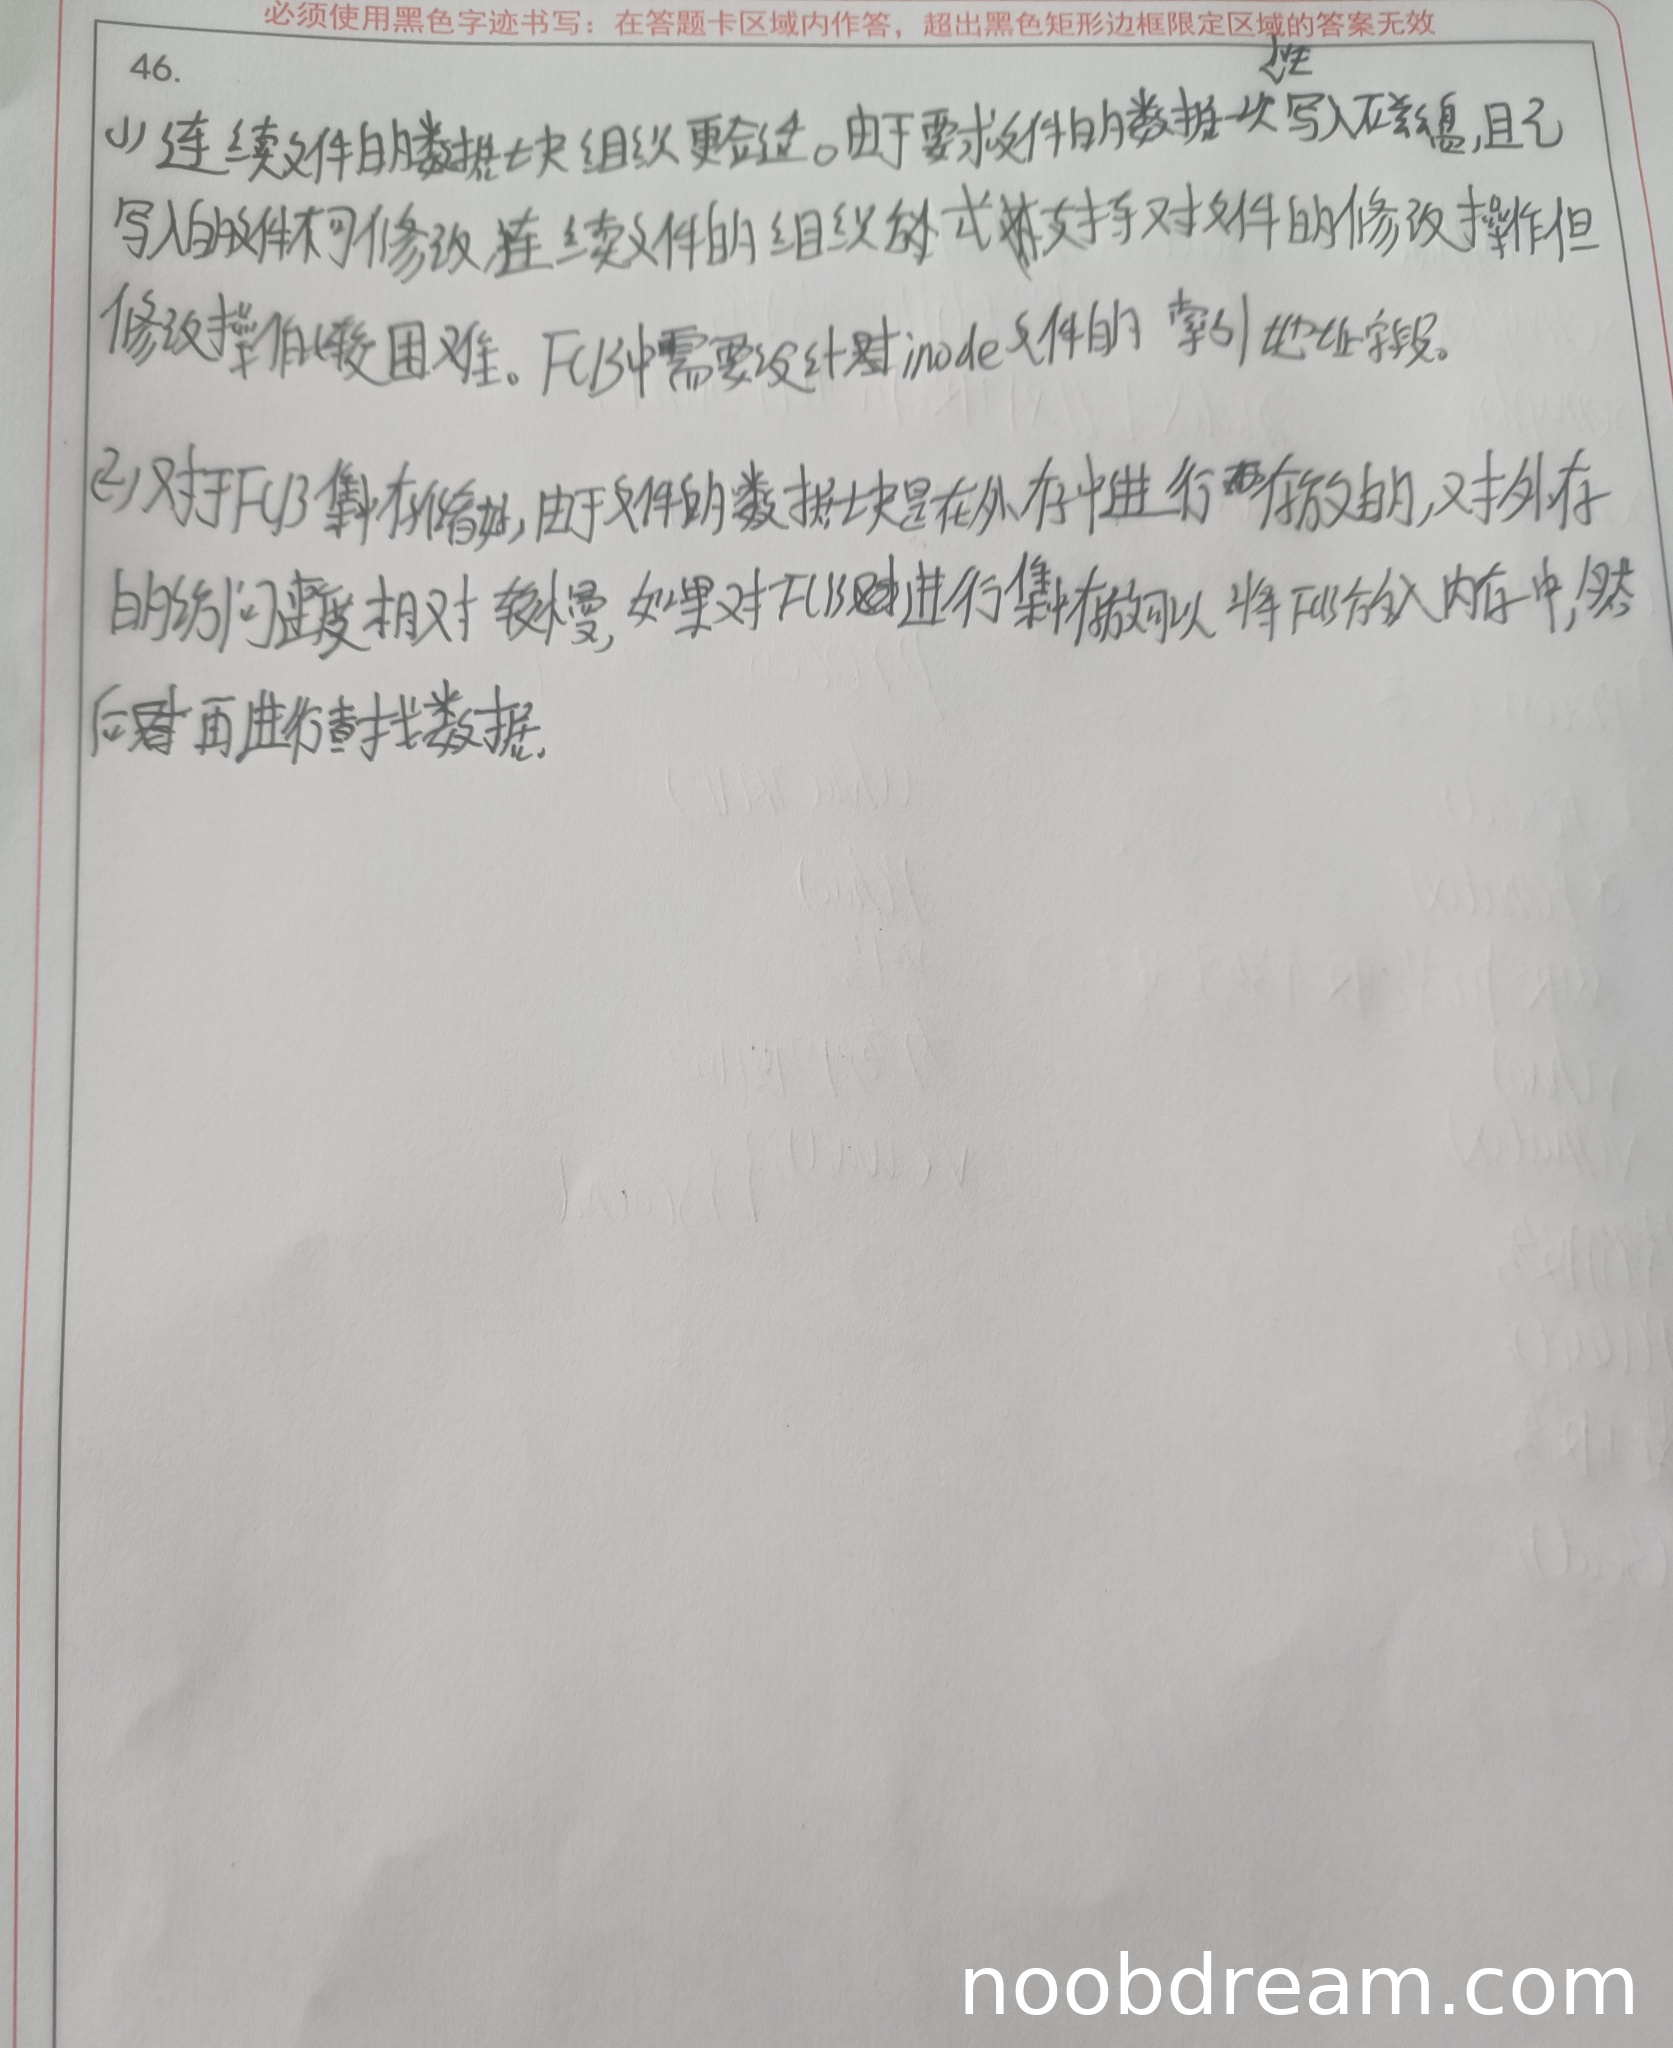 必须使用黑色字迹书写：在答题卡区域内作答，超出黑色矩形边框限定区域的答案无效
46.
性
(1) 连续文件的数据块组织更合适。由于要求文件的数据一次写入磁盘,且已
写入的文件不可修改,连续文件的组织方式支持对文件的修改操作但
修改操作比较困难。FCB中需要设计inode文件的 索引地址字段。
(2) 对于FCB集中存储好,由于文件的数据块是在外存中进行存放的,对外存
的访问速度相对较慢,如果对FCB进行集中存放可以将FCB存入内存中,然
后再进行查找数据.
noobdream.com